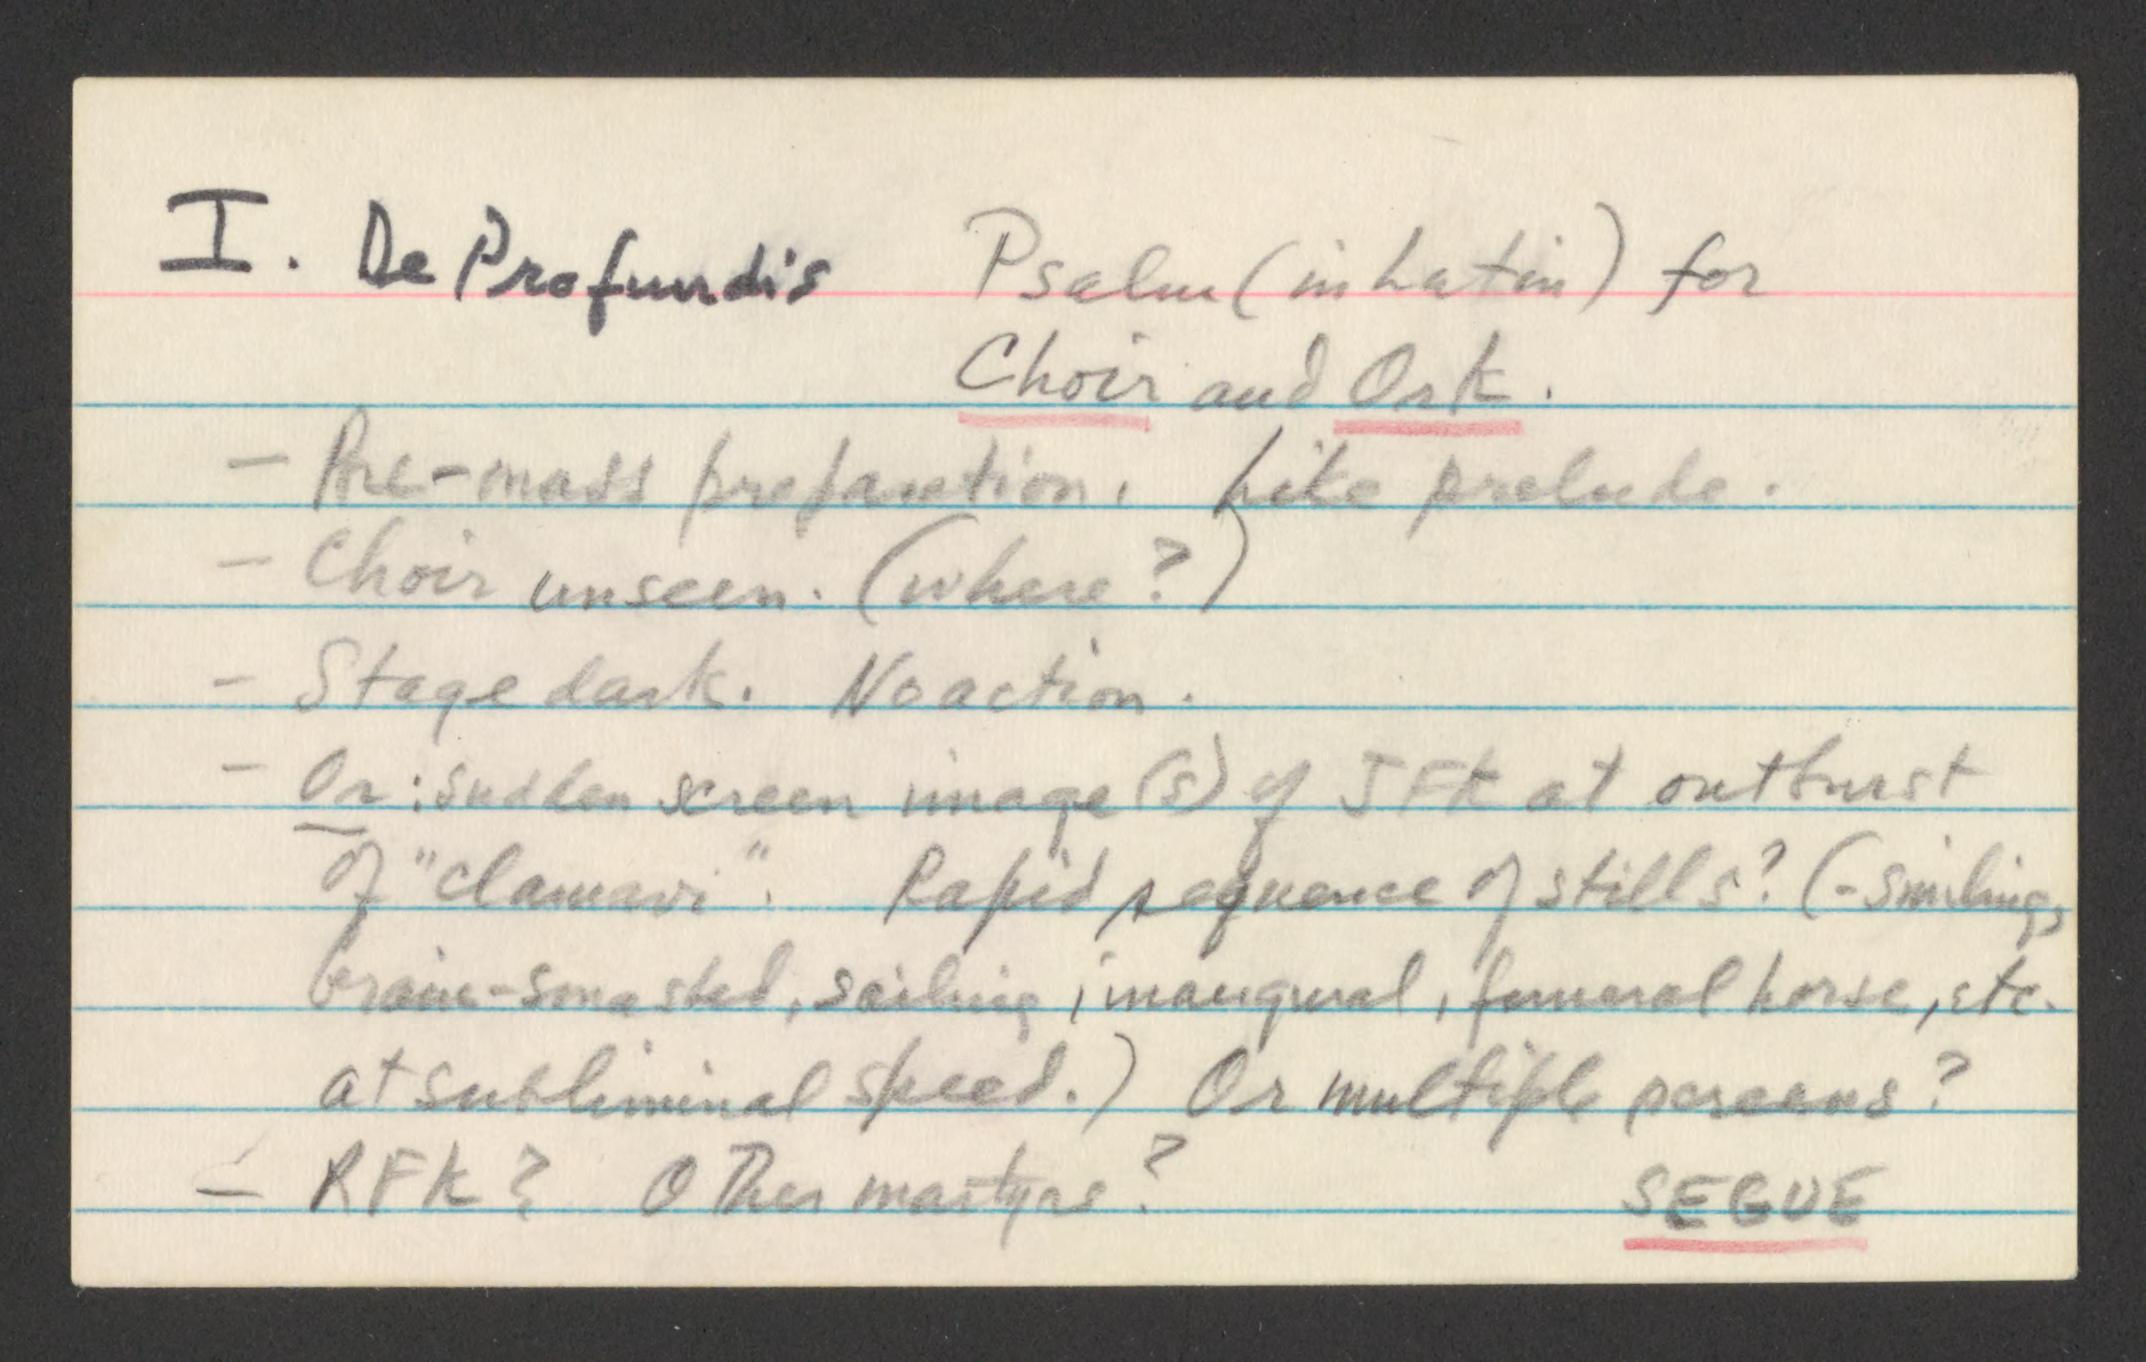 I. De Profundis Psalm (in Latin) for
Choir and Ork.
- Pre-mass preparation. Like prelude.
- Choir unseen. (where?)
- Stage dark. No action.
- Or: sudden screen image(s) of JFK at outburst
of "clamavi". Rapid sequence of stills? (-smiling,
brain-smashed, sailing, inaugural, funeral horse, etc.
at subliminal speed.) Or multiple screens?
- RFK? Other martyrs?
SEGUE